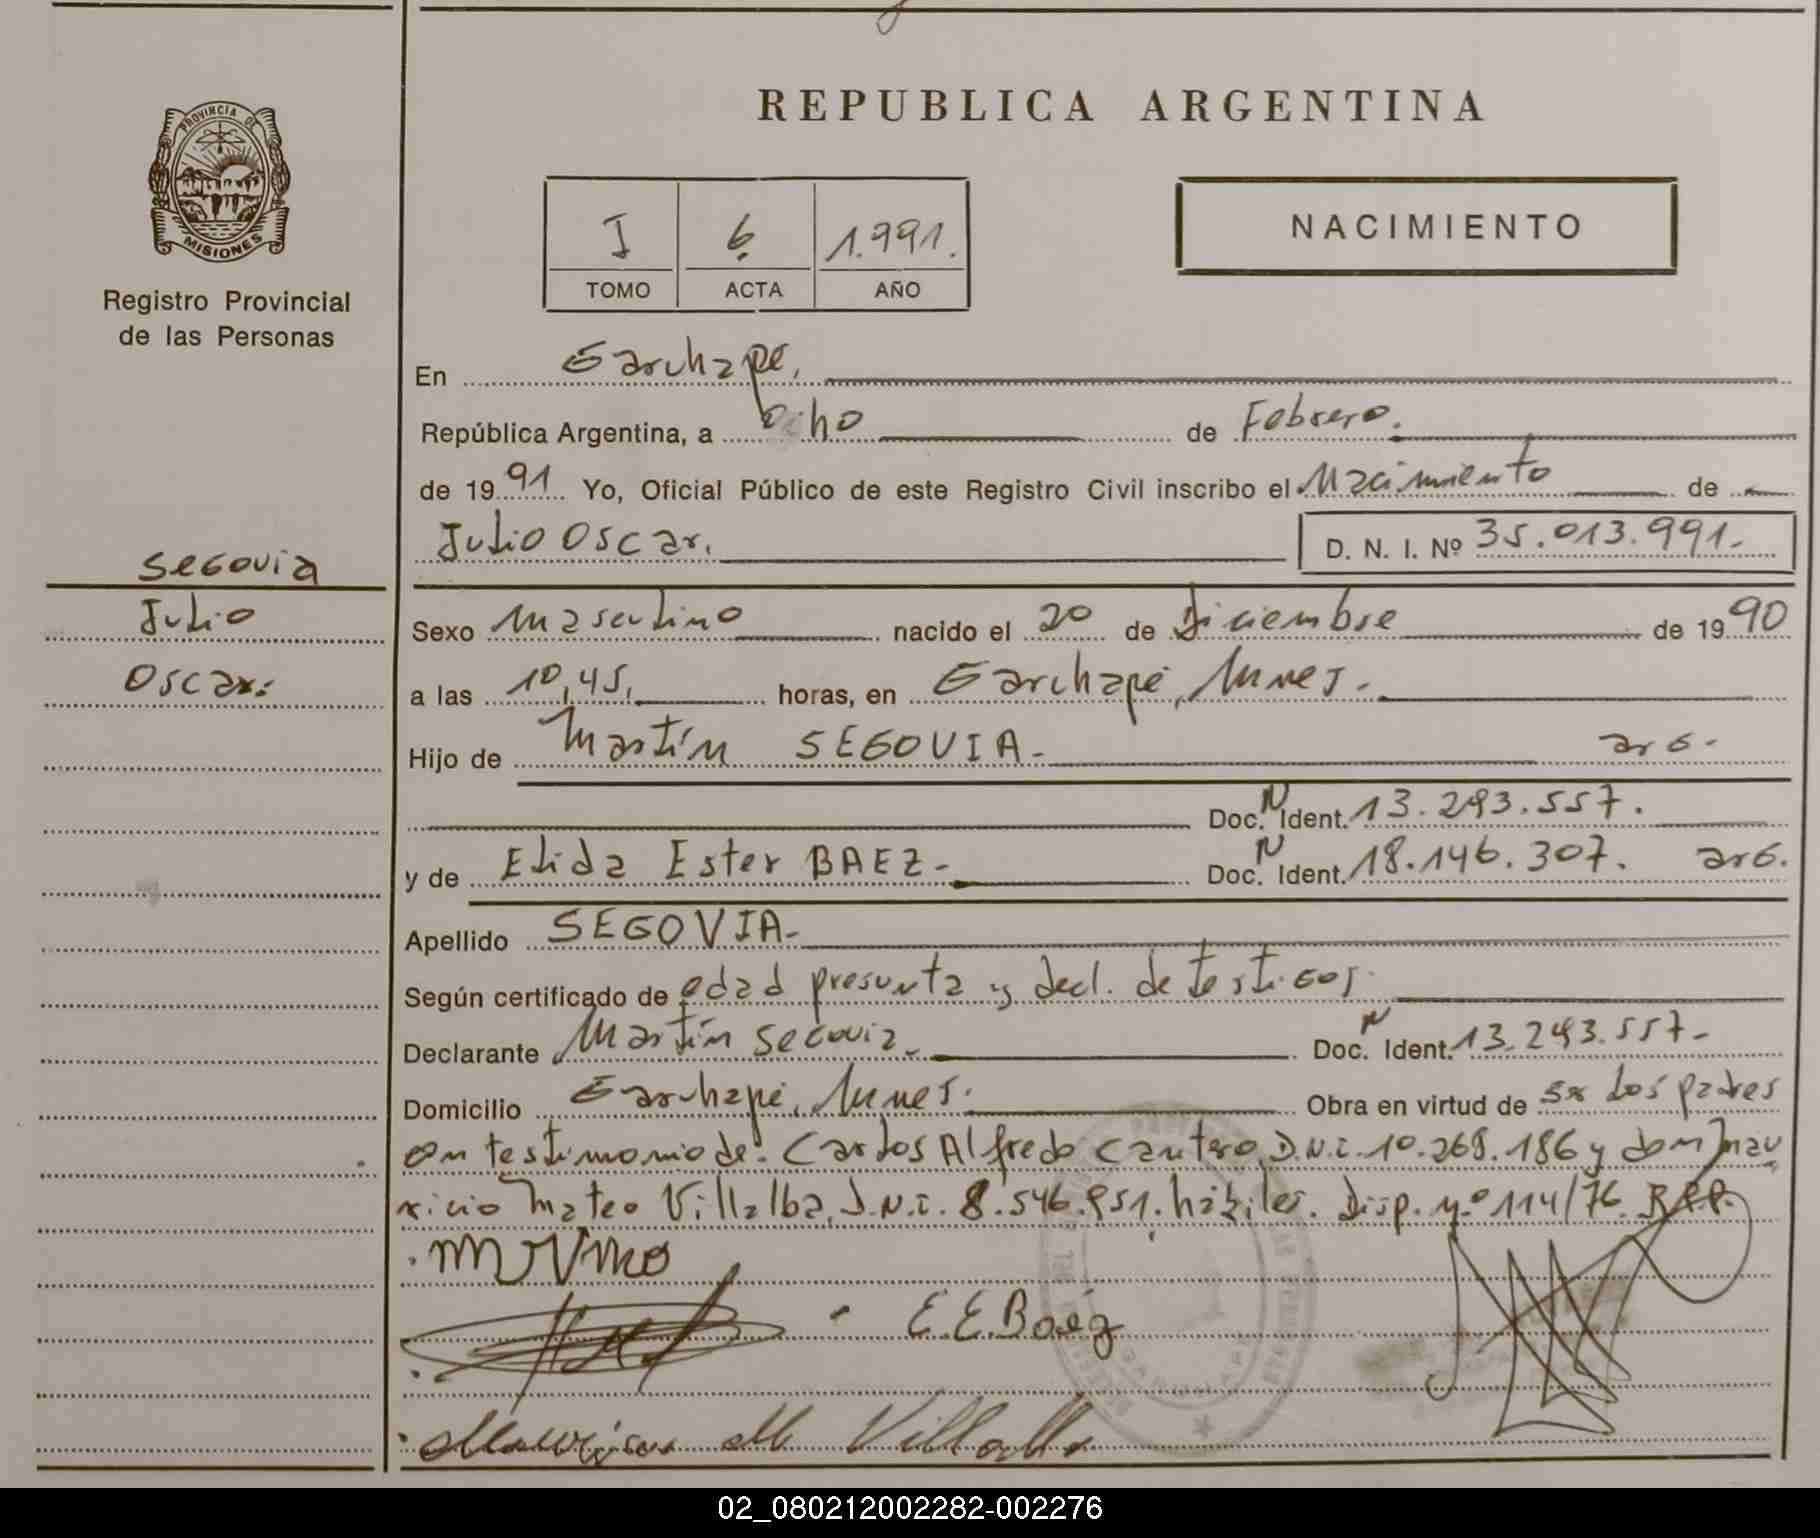 REPUBLICA ARGENTINA
PROVINCIA DE
MISIONES
Registro Provincial
de las Personas
I 6 1.991.
TOMO ACTA AÑO
NACIMIENTO
En Garuhapé,
República Argentina, a ocho de Febrero.
de 1991 Yo, Oficial Público de este Registro Civil inscribo el Nacimiento de
Julio Oscar. D. N. I. Nº 35.013.991.-
Segovia
Julio
Oscar.
Sexo Masculino nacido el 20 de Diciembre de 1990
a las 10,45, horas, en Garuhapé,
Hijo de Martín SEGOVIA.- arg.-
Doc. N Ident. 13.293.557.
y de Elida Ester BAEZ.- Doc. N Ident. 18.146.307. arg.
Apellido SEGOVIA.-
Según certificado de edad presunta y decl. de testigos.
Declarante Martín Segovia.- Doc. N Ident. 13.293.557.-
Domicilio Garuhapé, Obra en virtud de los padres
testimonio de: Carlos Alfredo Cantero, D.N.I. 10.268.186 y don Mau
ricio Mateo Villalba, D.N.I. 8.546.851. hábiles. Disp. Nº 114/76. R.P.P.
E.E.Baéz
M Villalba
02_080212002282-002276